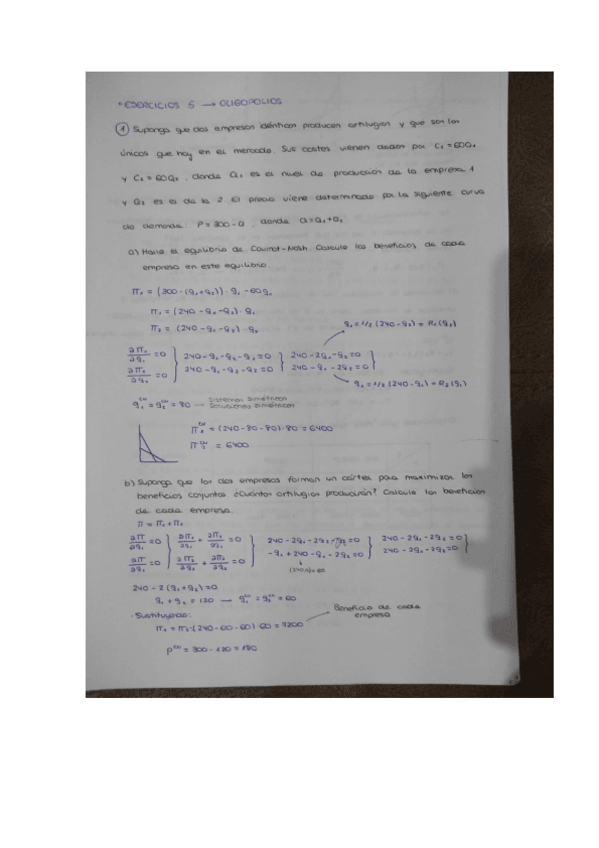 * EJERCICIOS 5 → OLIGOPOLIOS
1 Suponga que dos empresas idénticas producen artilugios y que son las
únicas que hay en el mercado. Sus costes vienen dados por C₁ = 60Q₁
y C₂ = 60Q₂, donde Q₁ es el nivel de producción de la empresa 1
y Q₂ es el de la 2. El precio viene determinado por la siguiente curva
de demanda: P = 300 - Q, donde Q = Q₁ + Q₂
a) Halle el equilibrio de Cournot-Nash. Calcule los beneficios de cada
empresa en este equilibrio.
π₁ = (300 - (q₁ + q₂)) · q₁ - 60q₁
π₁ = (240 - q₁ - q₂) · q₁
π₂ = (240 - q₁ - q₂) · q₂
q₁ = 1/2 (240 - q₂) = R₁(q₂)
∂π₁/∂q₁ = 0 } 240 - q₁ - q₂ - q₁ = 0 } 240 - 2q₁ - q₂ = 0 }
∂π₂/∂q₂ = 0 } 240 - q₁ - q₂ - q₂ = 0 } 240 - q₁ - 2q₂ = 0 }
q₂ = 1/2 (240 - q₁) = R₂(q₁)
q₁ = q₂ = 80 → Sistemas simétricos
Soluciones simétricas
π₁ = (240 - 80 - 80) · 80 = 6400
π₂ = 6400
b) Suponga que las dos empresas forman un cártel para maximizar los
beneficios conjuntos ¿Cuántos artilugios producirán? Calcule los beneficios
de cada empresa.
π = π₁ + π₂
∂π/∂q₁ = 0 } ∂π₁/∂q₁ + ∂π₂/∂q₁ = 0 } 240 - 2q₁ - 2q₂ = 0 } 240 - 2q₁ - 2q₂ = 0 }
∂π/∂q₂ = 0 } ∂π₁/∂q₂ + ∂π₂/∂q₂ = 0 } -q₁ + 240 - q₁ - 2q₂ = 0 } 240 - 2q₁ - 2q₂ = 0 }
240 - 2(q₁ + q₂) = 0
q₁ + q₂ = 120 → q₁ = q₂ = 60
· Sustituyendo:
Beneficio de cada
empresa
π₁ = π₂ = (240 - 60 - 60) 60 = 7200
P = 300 - 120 = 180